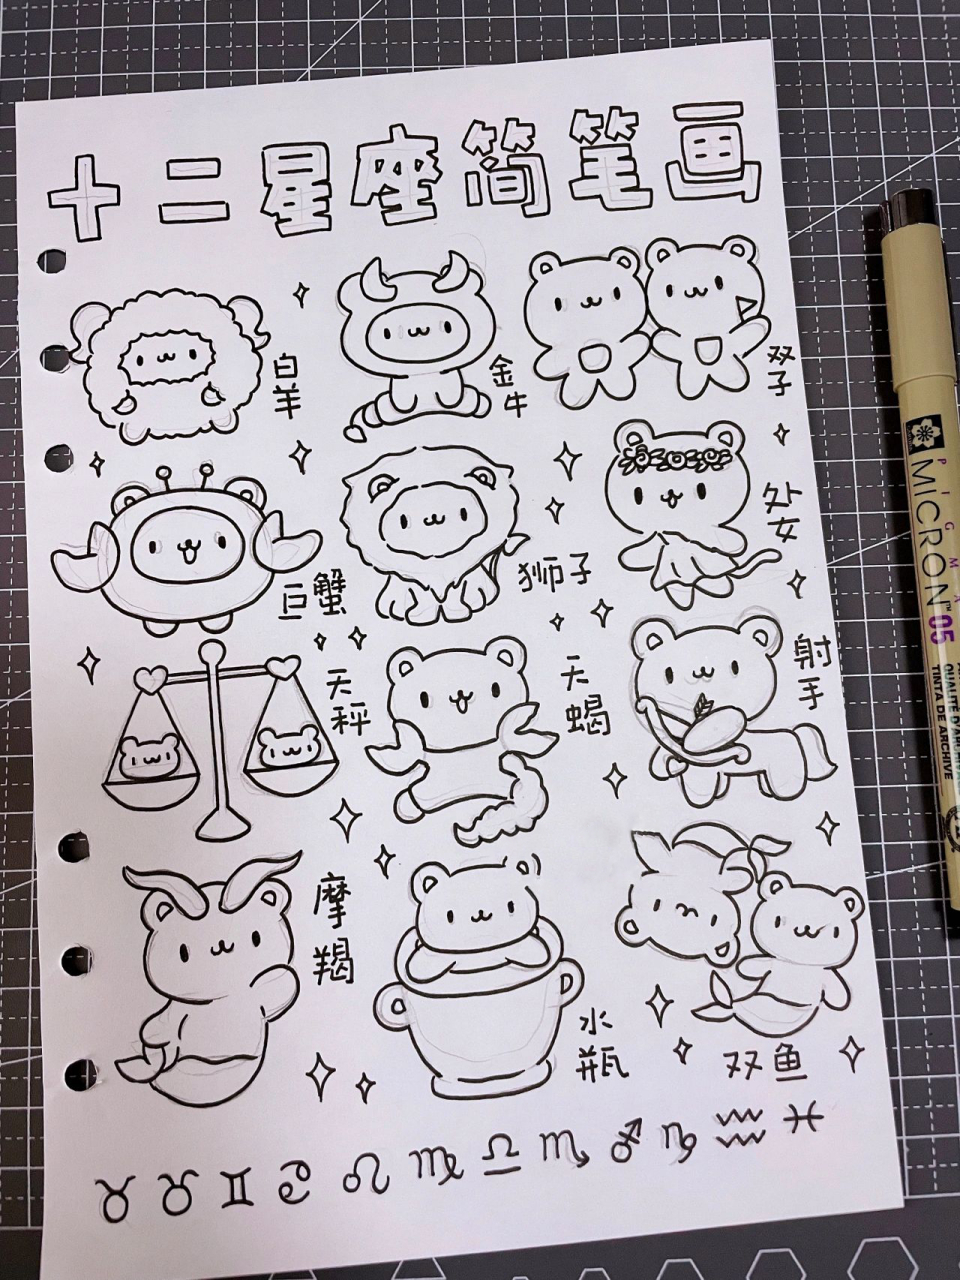 十二星座简笔画
白羊
金牛
双子
巨蟹
狮子
处女
天秤
天蝎
射手
摩羯
水瓶
双鱼
♉ ♉ ♊ ♋ ♌ ♍ ♎ ♏ ♐ ♑ ♒ ♓
PIGMA
MICRON™ 05
TINTA DE ARCHIVE